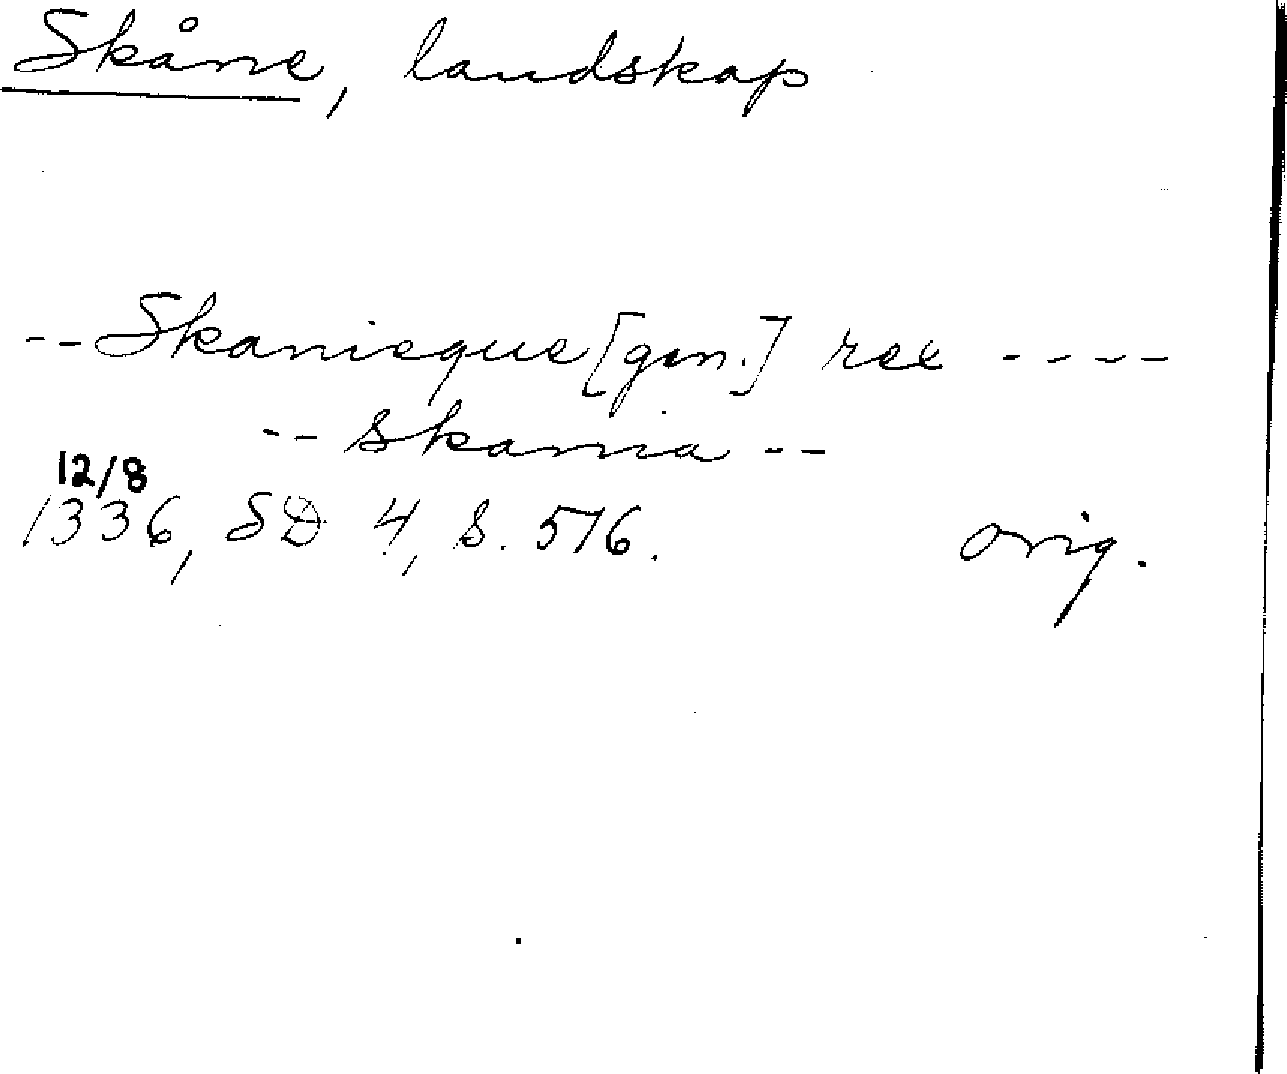 Skåne, landskap
-- Skanieque [gen.] rex ----
-- skania --
12/8
1336, SD 4, s. 516. orig.